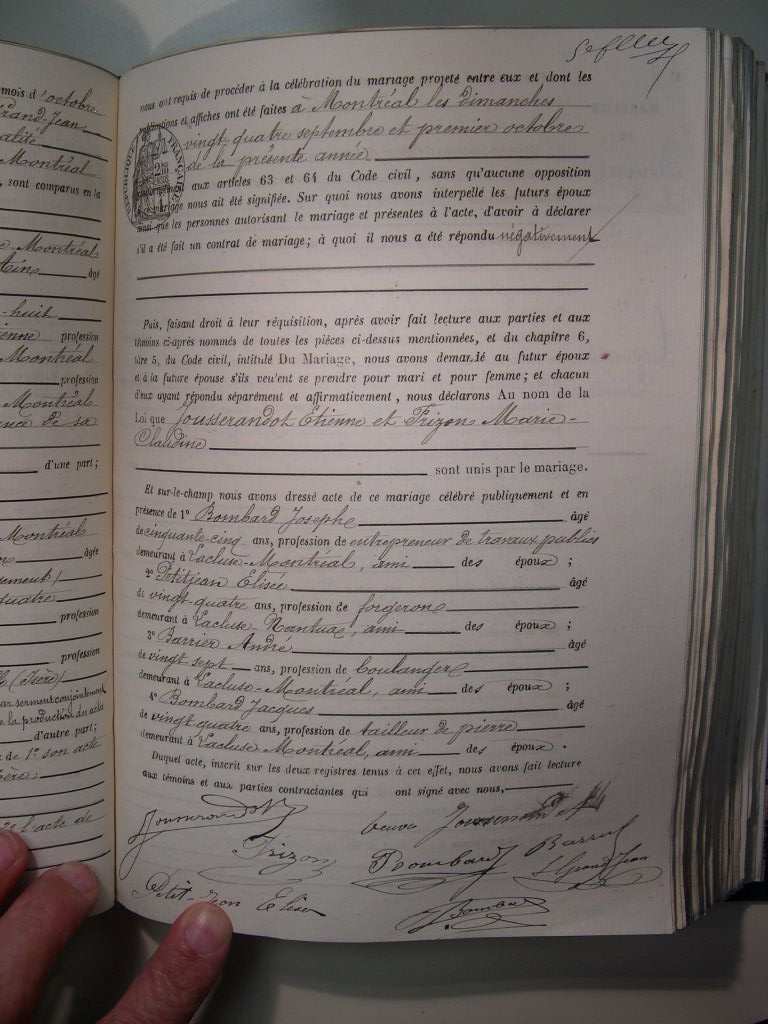 mois d'octobre
Grand-Jean
alité
Montréal
, sont comparus en la
Montréal
âgé
huit
profession
Montréal
profession
Montréal
ence de sa
d'une part;
Montréal
âgée
uatre
profession
profession
(Isère)
par serment conjointement
la production du
d'autre part;
de 1° son acte
l'acte de
nous ont requis de procéder à la célébration du mariage projeté entre eux et dont les
publications et affiches ont été faites à Montréal les dimanches
vingt-quatre septembre et premier octobre
de la présente année
RÉPUBLIQUE FRANÇAISE
aux articles 63 et 64 du Code civil, sans qu'aucune opposition
mariage nous ait été signifiée. Sur quoi nous avons interpellé les futurs époux
ainsi que les personnes autorisant le mariage et présentes à l'acte, d'avoir à déclarer
s'il a été fait un contrat de mariage; à quoi il nous a été répondu négativement
Puis, faisant droit à leur réquisition, après avoir fait lecture aux parties et aux
témoins ci-après nommés de toutes les pièces ci-dessus mentionnées, et du chapitre 6,
titre 5, du Code civil, intitulé Du Mariage, nous avons demandé au futur époux
et à la future épouse s'ils veulent se prendre pour mari et pour femme; et chacun
d'eux ayant répondu séparément et affirmativement, nous déclarons Au nom de la
Loi que Jousserandot Etienne et Frizon Marie-
Claudine
sont unis par le mariage.
Et sur-le-champ nous avons dressé acte de ce mariage célébré publiquement et en
présence de 1° Bombard Josephe âgé
de cinquante-cinq ans, profession de entrepreneur de travaux publics
demeurant à Lacluse-Montréal, ami des époux;
2° Petitjean Elisée âgé
de vingt-quatre ans, profession de forgeron
demeurant à Lacluse-Nantua, ami des époux;
3° Barrier André âgé
de vingt sept ans, profession de boulanger
demeurant à Lacluse-Montréal, ami des époux;
4° Bombard Jacques âgé
de vingt quatre ans, profession de tailleur de pierre
demeurant à Lacluse-Montréal, ami des époux.
Duquel acte, inscrit sur les deux registres tenus à cet effet, nous avons fait lecture
aux témoins et aux parties contractantes qui ont signé avec nous,
Jousserandot
Frizon Bombard
Grand Jean
Petit-Jean Elisée Bombard